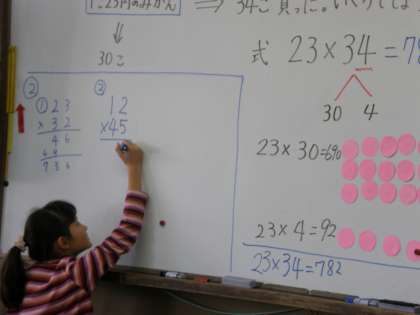 1こ23円のみかん
⇒ 34こ買った。いくらでしょ
⇓
30こ
式 23×34=78
30 4
②
① 23
×32
46
69
736
② 12
×45
23×30=690
23×4=92
23×34=782